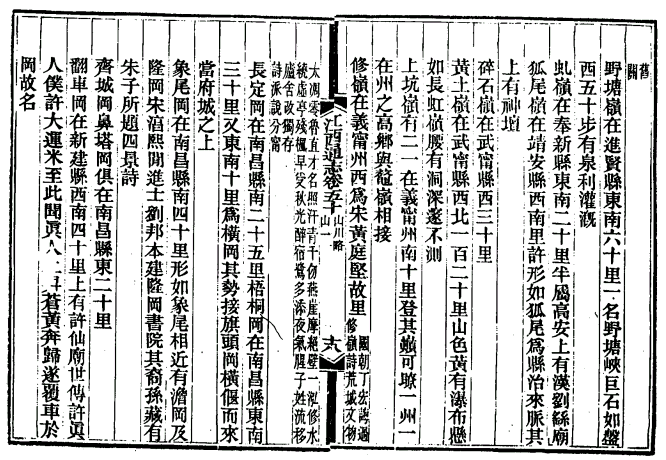 舊
野塘嶺在進賢縣東南六十里一名野塘峽巨石如盤
西五十步有泉利灌溉
虬嶺在奉新縣東南二十里半屬高安上有漢劉繇廟
狐尾嶺在靖安縣西南里許形如狐尾爲縣治來脈其
上有神壇
碎石嶺在武甯縣西三十里
黃土嶺在武甯縣西北一百二十里山色黃有瀑布懸
如長虹嶺腰有洞深邃不測
上坑嶺有二一在義甯州南十里登其巔可瞭一州一
在州之高鄉與嶺相接
修嶺在義甯州西爲宋黃庭堅故里國朝丁宏誨過
修嶺詩荒城文物
江西通志卷五十 山川略 山一 十六
太凋零魯直才名照汗青千仞燕崖摩絕壁一泓修水
繞虛亭殘楓早受秋光醉宿鷺多添夜氣腥子姓流移
廬舍改獨存
詩派說分甯
長定岡在南昌縣南二十五里梧桐岡在南昌縣東南
三十里又東南十里爲橫岡其勢接旗頭岡橫偃而來
當府城之上
象尾岡在南昌縣南四十里形如象尾相近有澹岡及
隆岡宋湻熙閒進士劉邦本建隆岡書院其裔孫藏有
朱子所題四景詩
齊城岡鼻塔岡俱在南昌縣東二十里
翻車岡在新建縣西南四十里上有許仙廟世傳許眞
人僕許大運米至此聞眞人上昇蒼黃奔歸遂覆車於
岡故名